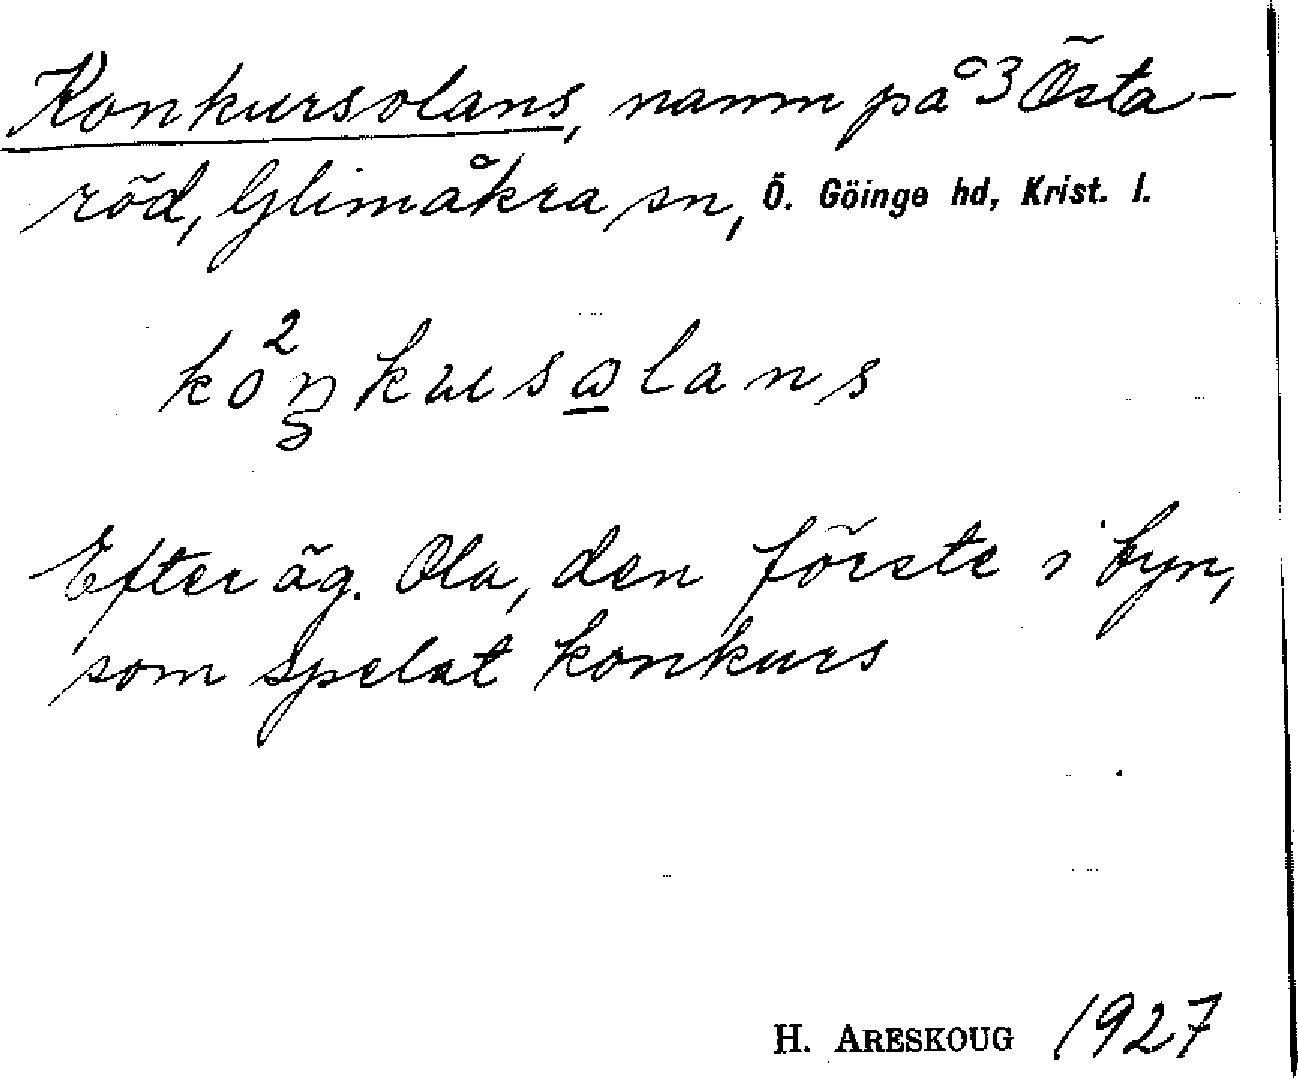 Konkursolans, namn på 3 Östa-
röd, Glimåkra sn, Ö. Göinge hd, Krist. l.
ko²ŋkusωlans
Efter äg. Ola, den förste i byn,
som spelat konkurs
H. ARESKOUG 1927